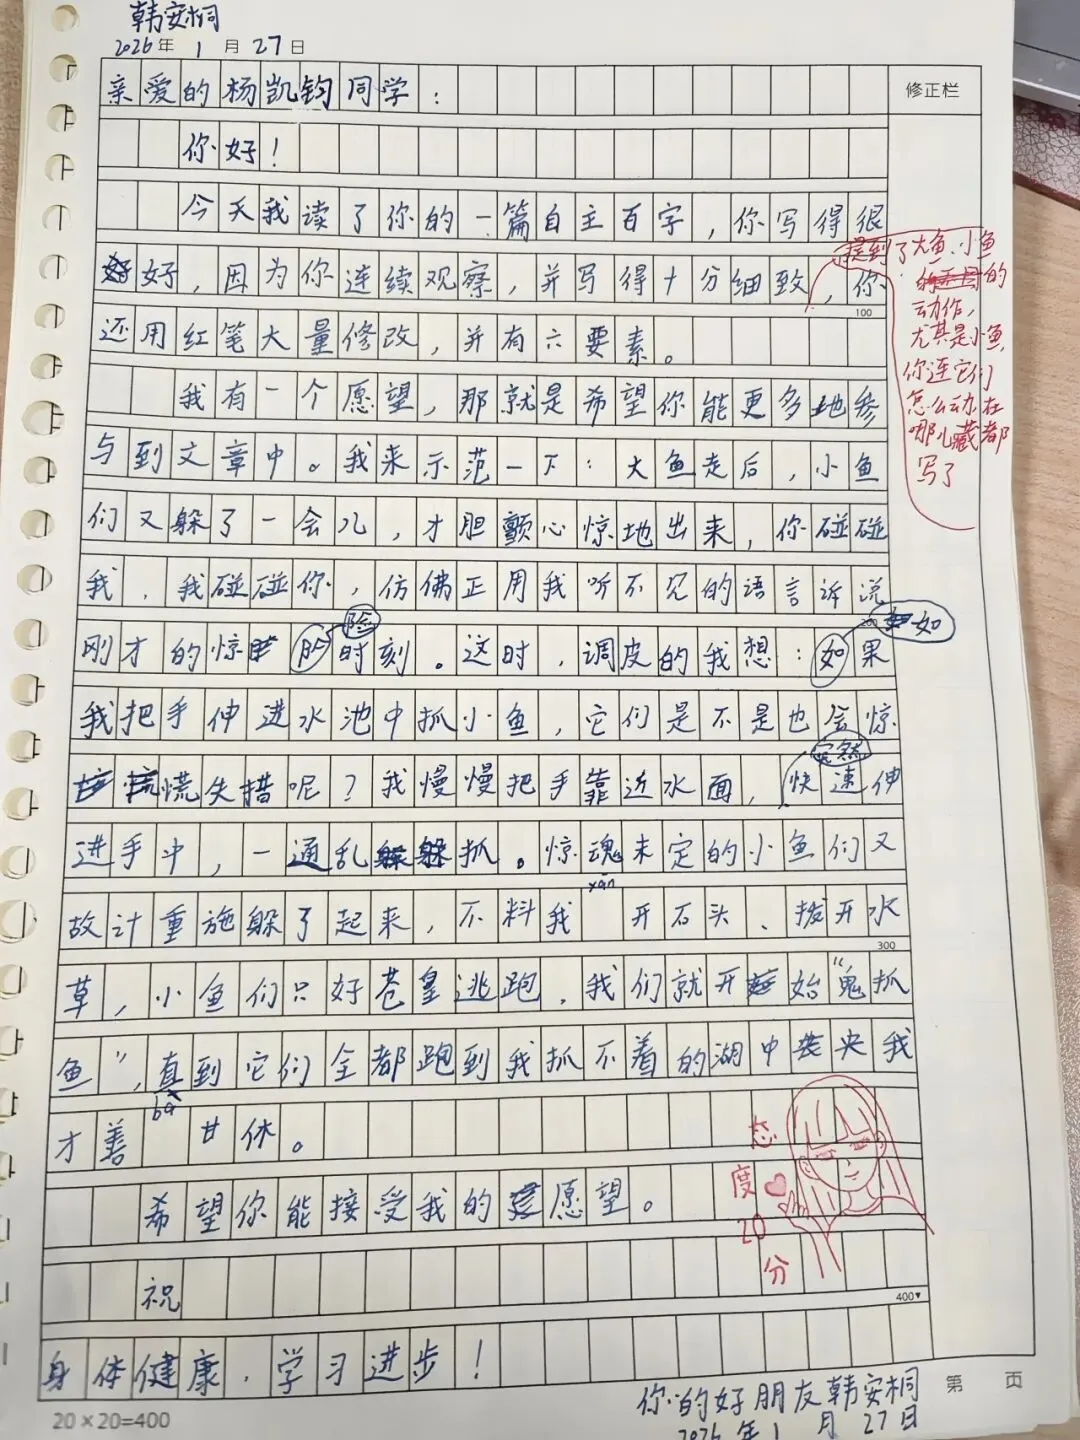 韩安桐
2026年1月27日
亲爱的杨凯钧同学：
修正栏
你好！
今天我读了你的一篇自主百字，你写得很
好，因为你连续观察，并写得十分细致，你
提到了大鱼、小鱼
的
动作，
尤其是小鱼，
你连它们
怎么动在
哪儿藏都
写了
100
还用红笔大量修改，并有六要素。
我有一个愿望，那就是希望你能更多地参
与到文章中。我来示范一下：大鱼走后，小鱼
们又躲了一会儿，才胆颤心惊地出来，你碰碰
我，我碰碰你，仿佛正用我听不见的语言诉说
200
险
如
刚才的惊时刻。这时，调皮的我想：如果
我把手伸进水池中抓小鱼，它们是不是也会惊
突然
慌失措呢？我慢慢把手靠近水面，快速伸
进手中，一通乱抓。惊魂未定的小鱼们又
故计重施躲了起来，不料我xān开石头、拨开水
300
草，小鱼们只好苍皇逃跑，我们就开始“鬼抓
鱼”，直到它们全都跑到我抓不着的湖中央我
才善bà甘休。
态度20分
希望你能接受我的愿望。
祝
400
身体健康，学习进步！
你的好朋友韩安桐
2026年1月27日
第 页
20×20=400